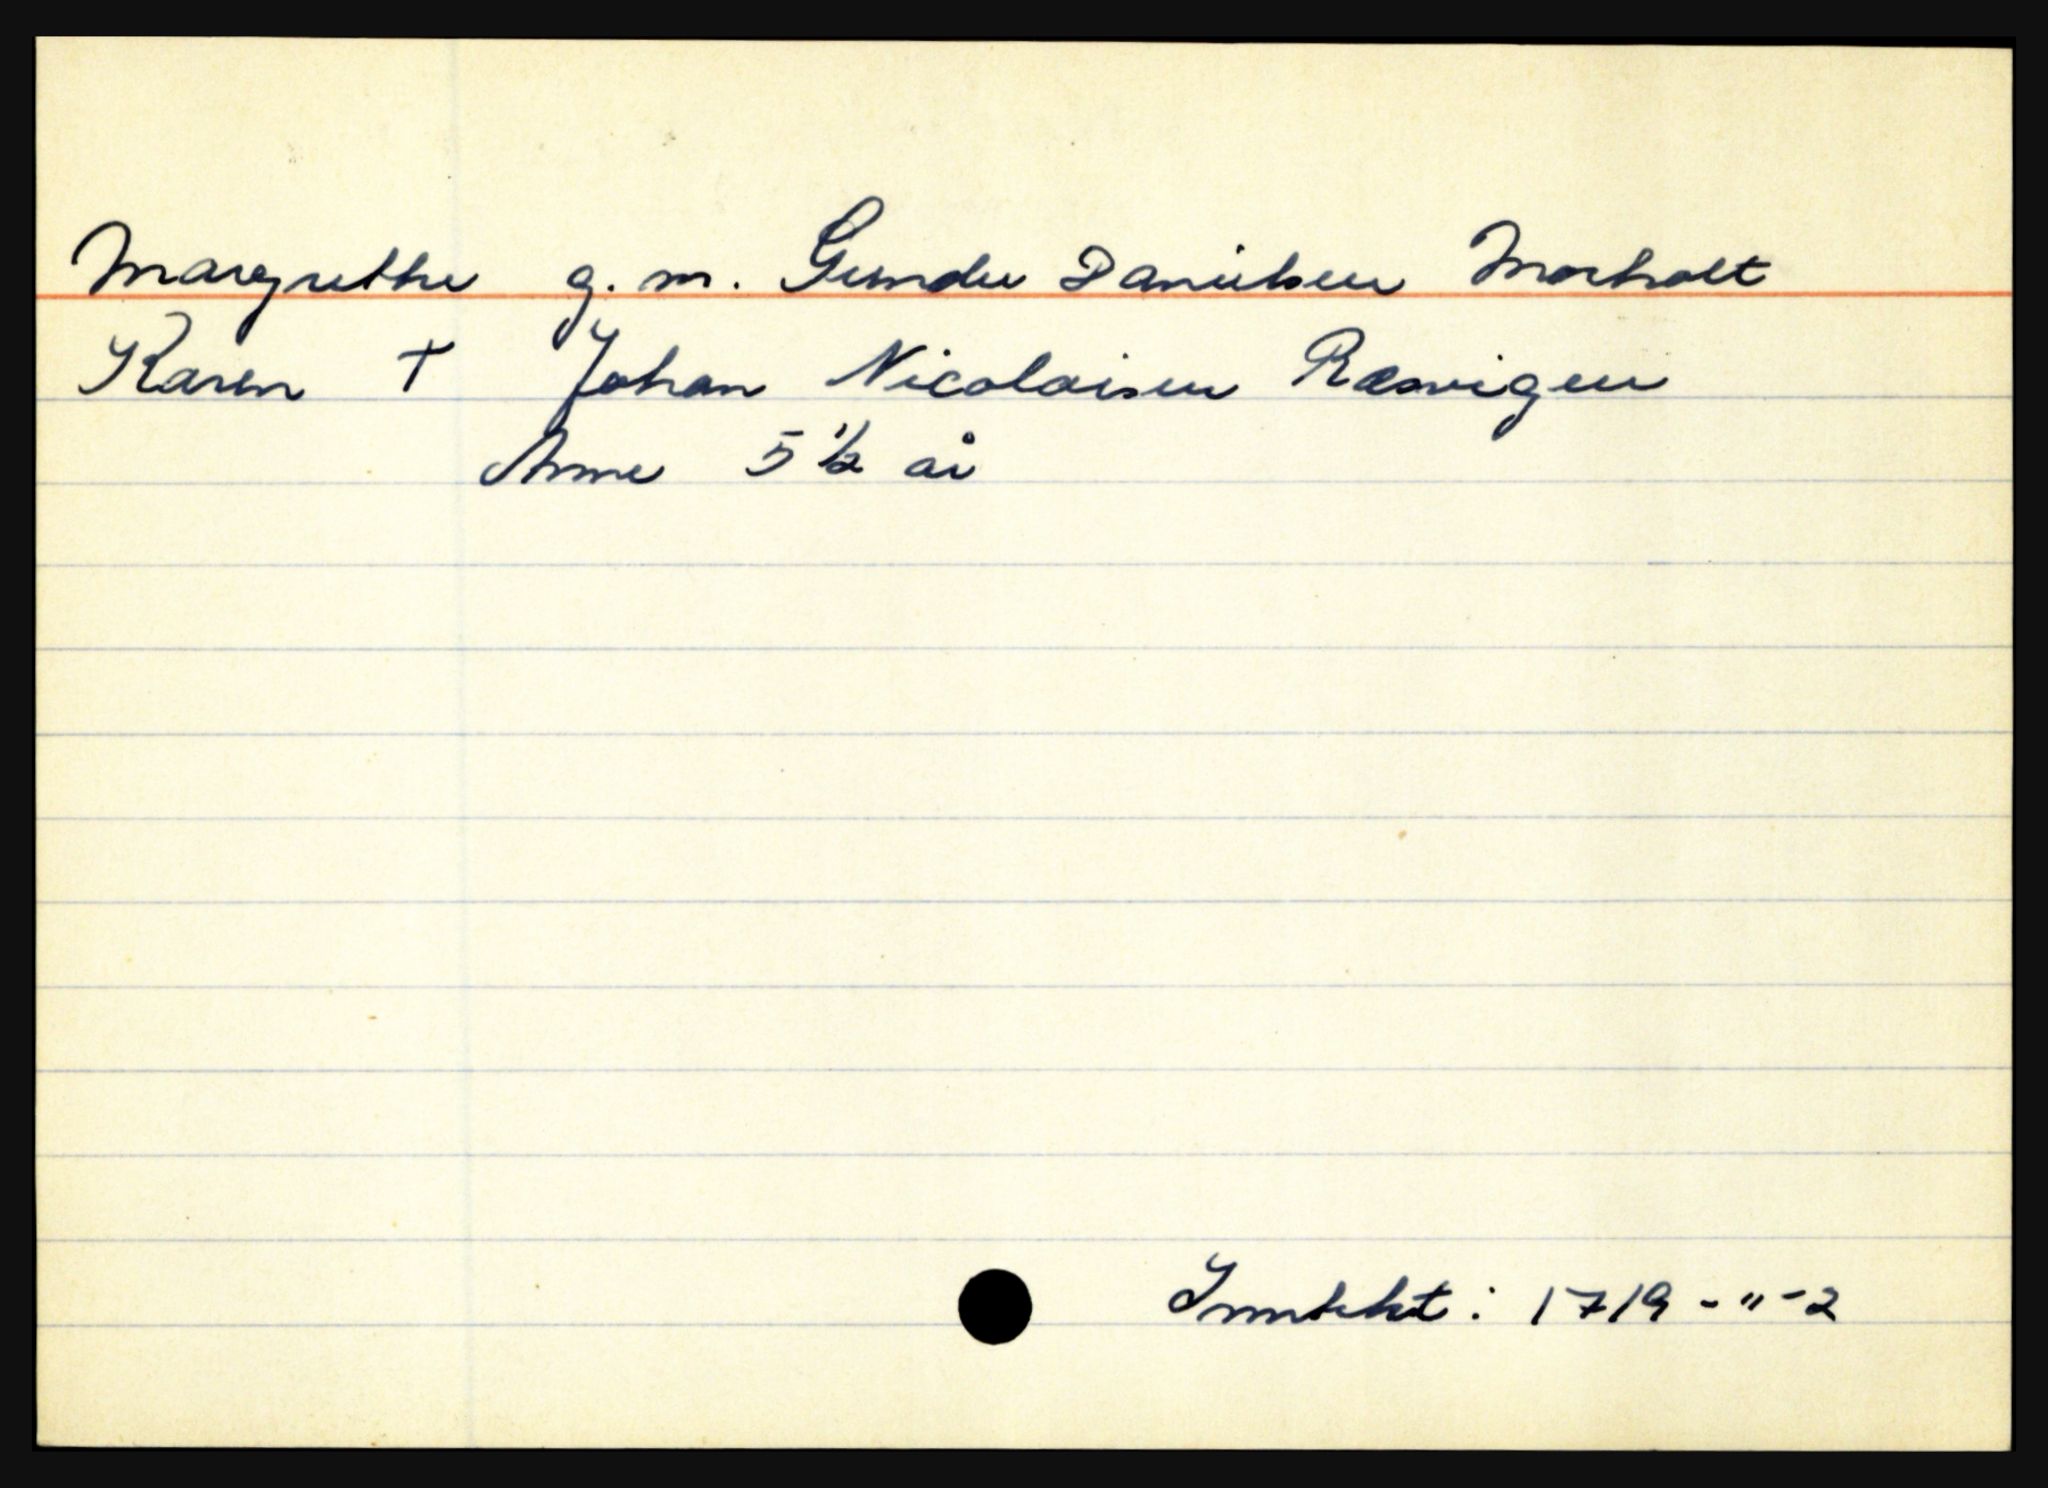 Margrethe g. m. Gunder Danielsen Morholt
Karen † Johan Nicolaisen Ræsvigen
Anne 5 1/2 år
Inntekt: 1719 - " - 2